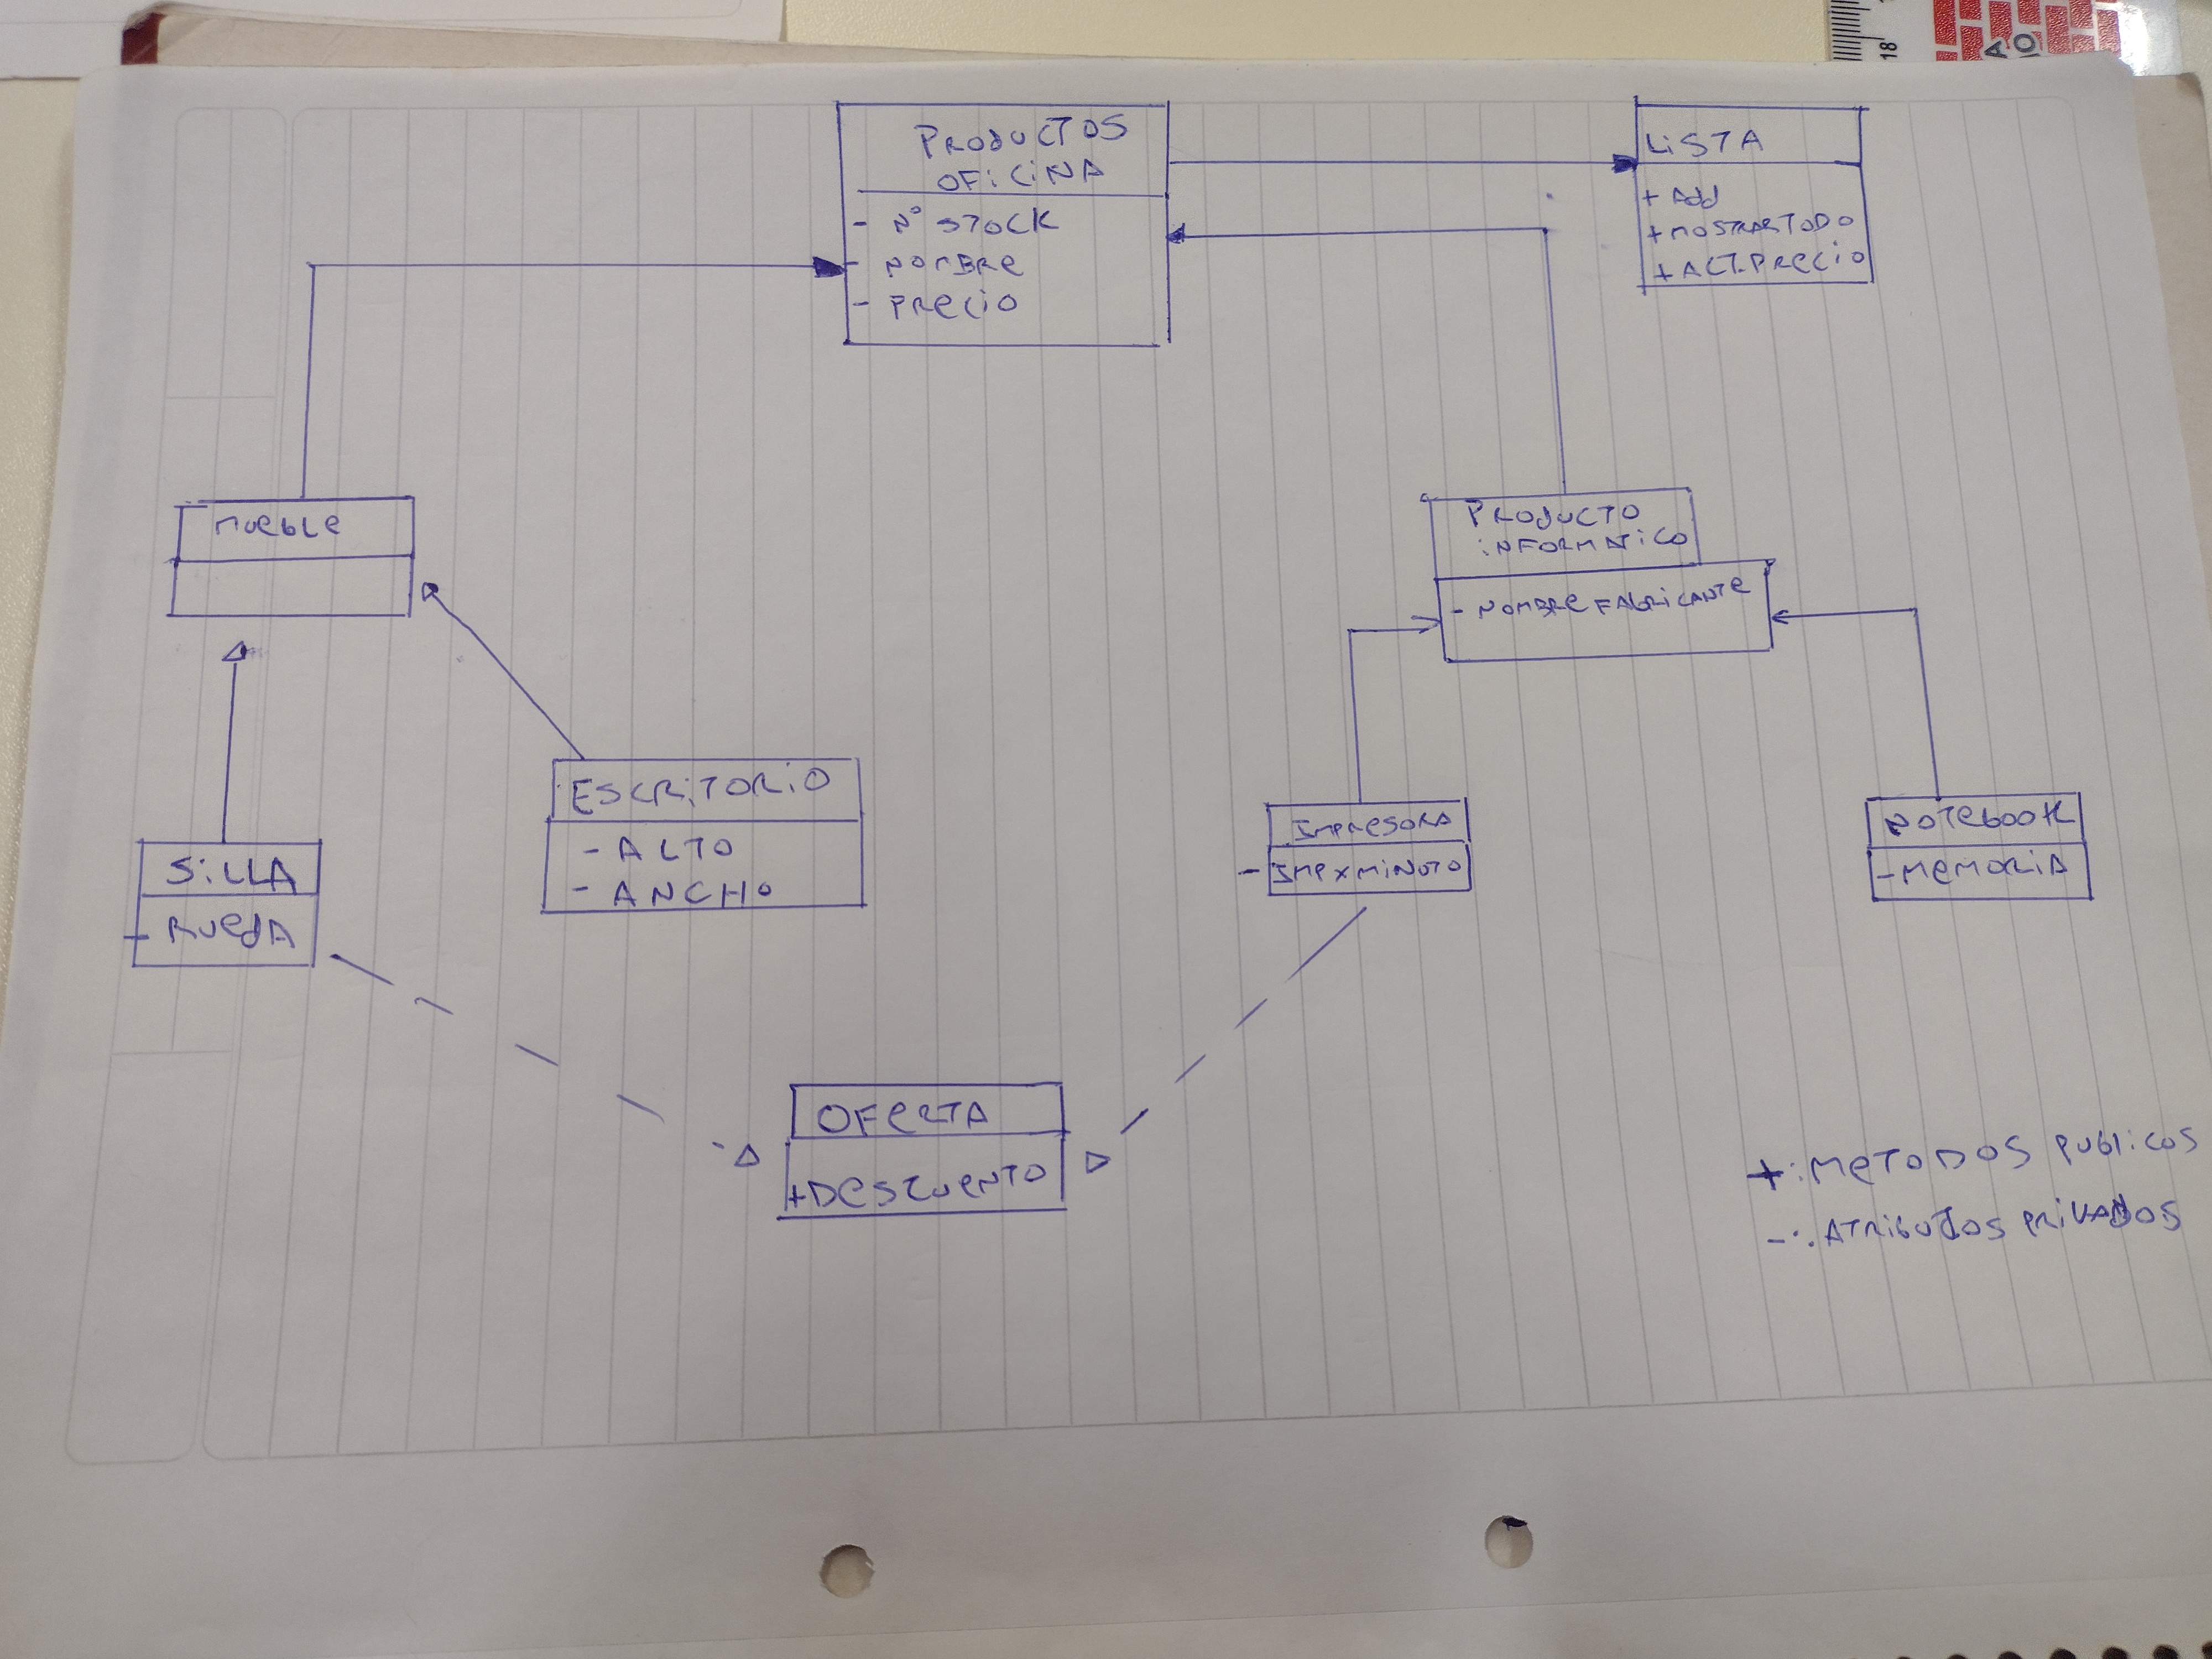 PRODUCTOS
OFICINA
- N° STOCK
- NOMBRE
- PRECIO
LISTA
+ Add
+ MOSTRARTODO
+ ACT.PRECIO
MUEBLE
PRODUCTO
INFORMATICO
- NOMBRE FABRICANTE
ESCRITORIO
- ALTO
- ANCHO
SILLA
- RUEDA
IMPRESORA
- IMPXMINUTO
NOTEBOOK
- MEMORIA
OFERTA
+DESCUENTO
+: METODOS PUBLICOS
-: ATRIBUTOS PRIVADOS
18